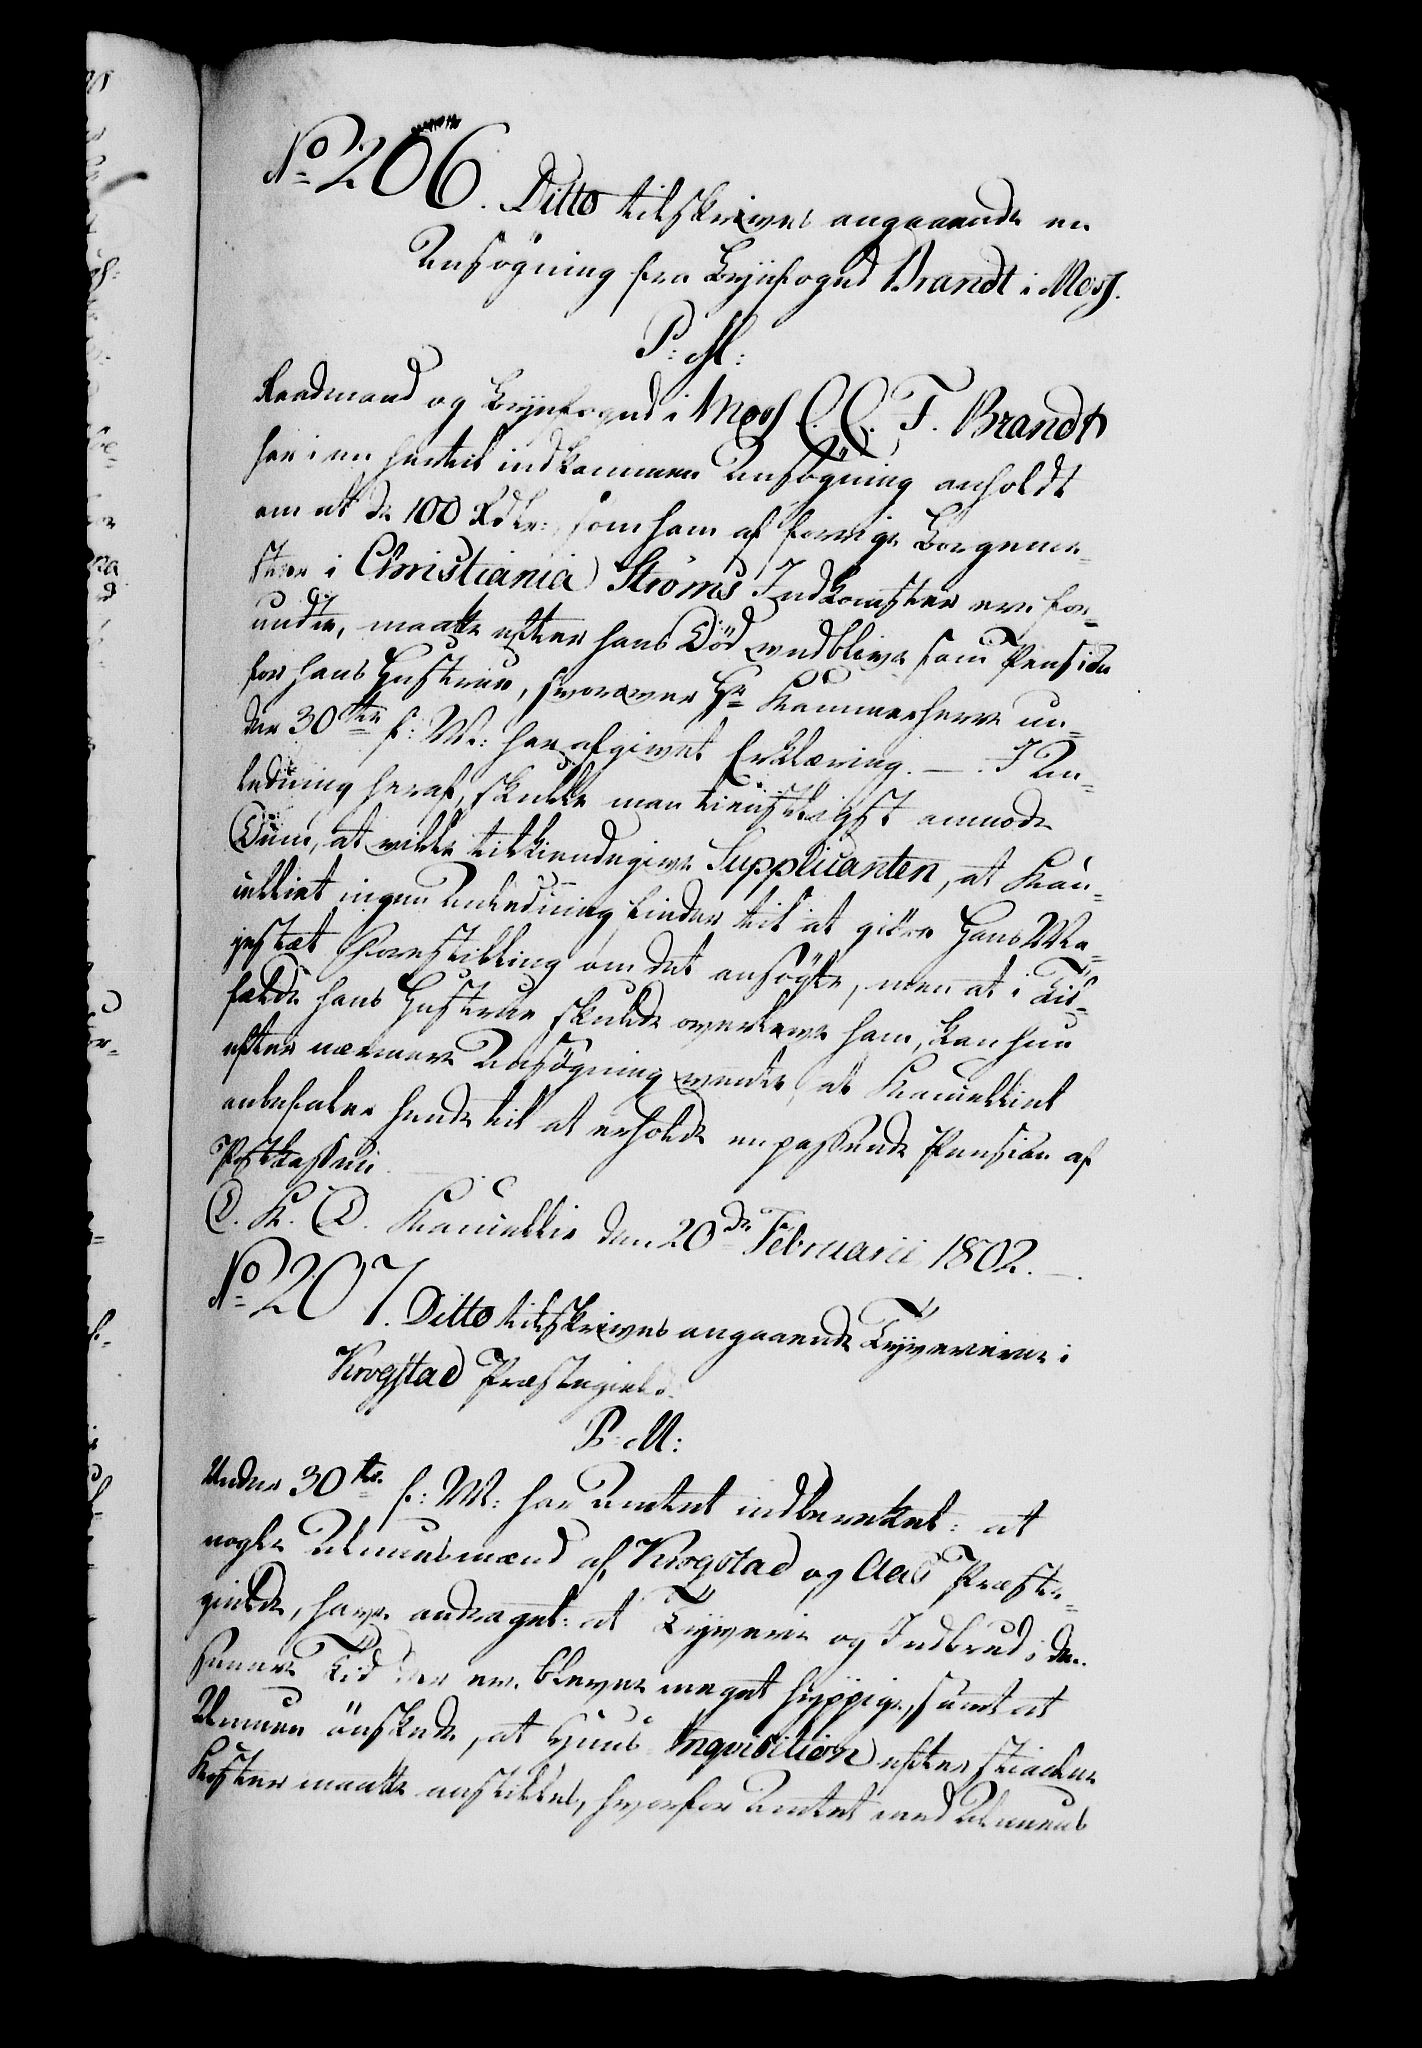 No 206. Ditto tilskrives angaaende en
Ansøgning fra Byefoged Brandt i Moss.
P: M:
Raadmand og Byefoged i Moss C. C. F. Brandt
har i en hertil indkommen Ansøgning anholdt
om at de 100 Rdlr: som ham af forrige Borgeme-
ster i Christiania Strøms Indkomster ere for-
undte, maatte efter hans Død vedblive som Pension
for hans Hustrue, hvorover Hr Kammerherre un-
der 30te f: M: har afgivet Erklæring. — I An-
ledning heraf, skulle man tienstligst anmode
Dem, at ville tilkiendegive Supplicanten, at Kan-
celliet ingen Anledning finder til at giøre Hans Ma-
jestæt Forestilling om det ansøgte, men at i Til-
fælde hans Hustrue skulde overleve ham, kan hun
efter nærmere Ansøgning vente, at Kancelliet
anbefaler hende til at erholde en passende Pension af
Postkassen.
D. K. D. Kancellie den 20de Februarii 1802. —
No 207. Ditto tilskrives angaaende Tyverierne i
Krogstad Præstegield.
P: M:
Under 30te f: M: har Amtet indberettet: at
nogle Almuesmænd af Krogstad og Aas Præste-
gielde, have andraget: at Tyverie og Indbrud i den
senere Tid der ere blevne meget hyppige, samt at
Almuen ønskede, at Huus Inqvisition efter stiaalne
Koster maatte anstilles, hvorfor Amtet med Almuens